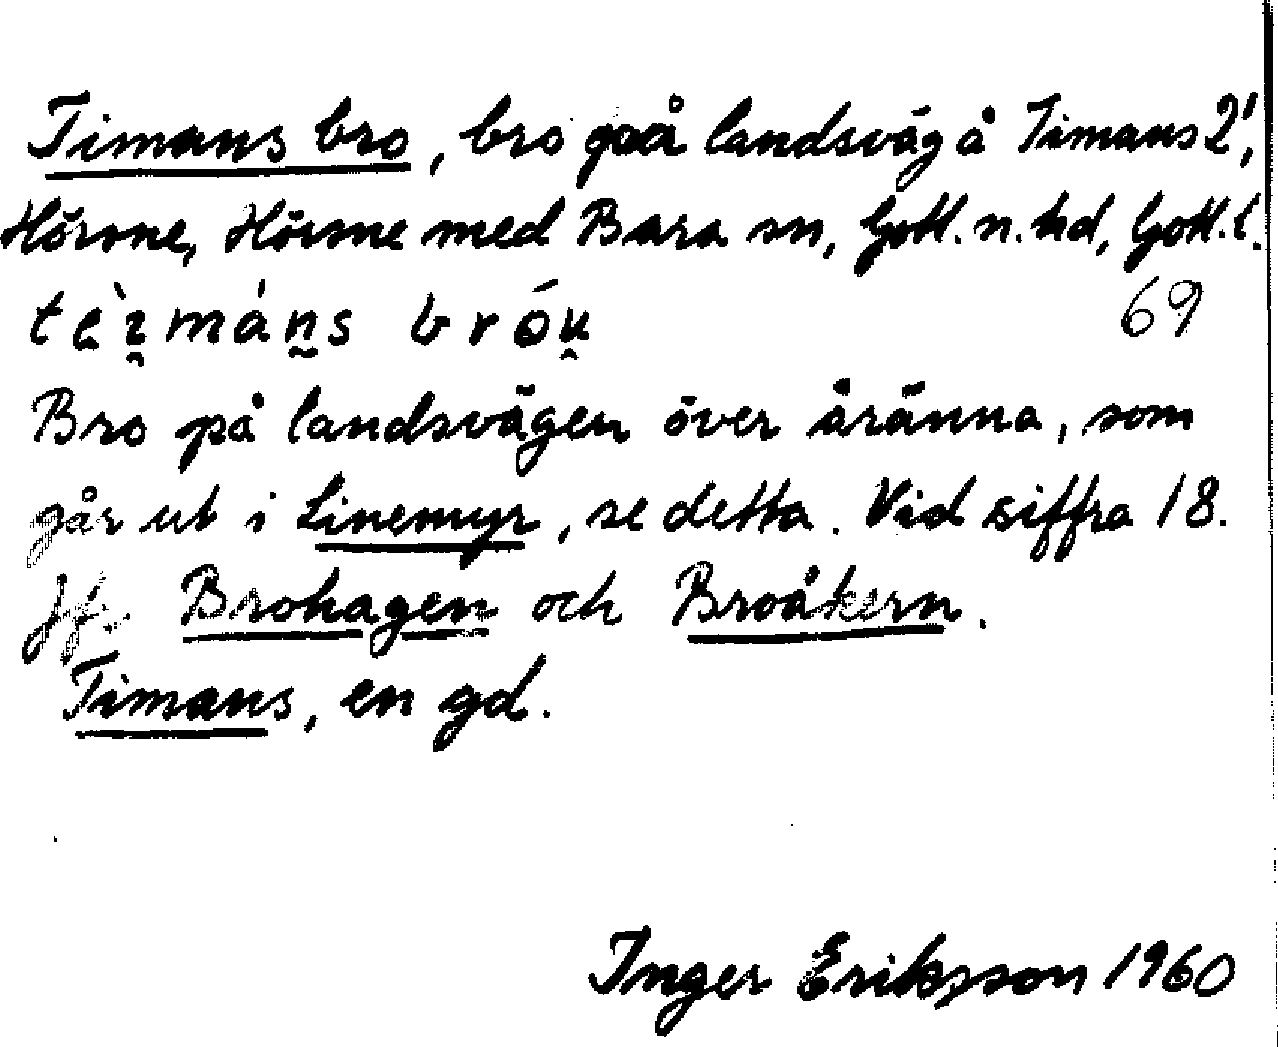 Timans bro, bro på landsväg å Timans 2¹,
Hörsne, Hörsne med Bara sn, Gotl. n. hd, Gotl. l.
bróu̯ 69
Bro på landsvägen över åränna, som
går ut i Linemyr, se detta. Vid siffra 18.
Jfr Brohagen och Broåkern.
Timans, en gd.
Inger Eriksson 1960